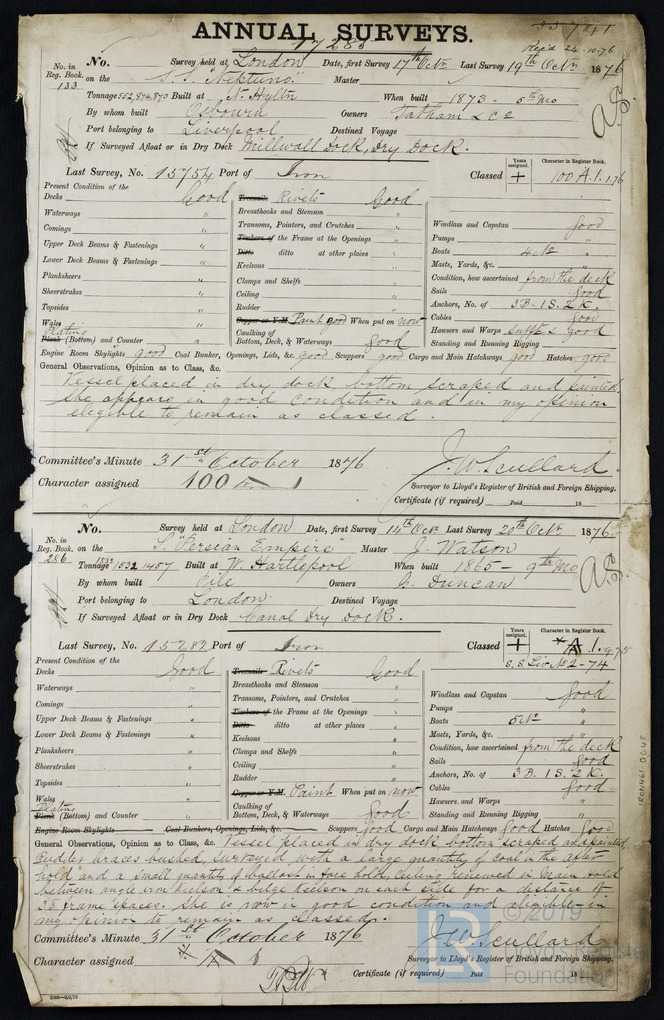 ANNUAL SURVEYS.
17283
Rec'd 24-10-76
No. in Reg. Book. 133
No. Survey held at London Date, first Survey 17th Octr Last Survey 19th Octr 1876
on the S.S. "Neptuno" Master
Tonnage 552,874,870 Built at N. Hylton When built 1873 - 5th Mo
By whom built Osbourn Owners Tatham & Co
Port belonging to Liverpool Destined Voyage
If Surveyed Afloat or in Dry Dock Millwall Dock, Dry Dock.
Last Survey, No. 15754 Port of Iron Classed
Years assigned. +
Character in Register Book. 100 A.1. 1.76
Present Condition of the
Decks Good
Waterways "
Comings "
Upper Deck Beams & Fastenings "
Lower Deck Beams & Fastenings "
Planksheers "
Sheerstrakes "
Topsides "
Wales "
Plating
Plank (Bottom) and Counter "
Treenails Rivets Good
Breasthooks and Stemson "
Transoms, Pointers, and Crutches "
Timbers of the Frame at the Openings "
Ditto ditto at other places "
Keelsons "
Clamps and Shelfs "
Ceiling "
Rudder "
Copper or Y.M. Paint good When put on now
Caulking of Bottom, Deck, & Waterways Good
Windlass and Capstan Good
Pumps "
Boats 4 No "
Masts, Yards, &c. "
Condition, how ascertained from the deck
Sails Good
Anchors, No. of 3 B. 1 S. 2 K.
Cables Good
Hawsers and Warps Suff't & good
Standing and Running Rigging "
Engine Room Skylights good Coal Bunker, Openings, Lids, &c. good Scuppers good Cargo and Main Hatchways good Hatches good
General Observations, Opinion as to Class, &c.
Vessel placed in dry dock bottom scraped and painted.
She appears in good condition and in my opinion
elegible to remain as classed.
Committee's Minute 31st October 1876
Character assigned 100 A 1
J. W. Scullard.
Surveyor to Lloyd's Register of British and Foreign Shipping.
Certificate (if required) Paid 18
No. in Reg. Book. 286
No. Survey held at London Date, first Survey 14th Octr Last Survey 20th Octr 1876
on the S. "Persian Empire" Master J. Watson
Tonnage 1532 1457 Built at W. Hartlepool When built 1865 - 9th Mo
By whom built Pile Owners G. Duncan
Port belonging to London Destined Voyage
If Surveyed Afloat or in Dry Dock Canal Dry Dock.
Last Survey, No. 15282 Port of Iron Classed
Years assigned. +
Character in Register Book. A 1. 9.75
S.S. Liv. No 2-74
Present Condition of the
Decks Good
Waterways "
Comings "
Upper Deck Beams & Fastenings "
Lower Deck Beams & Fastenings "
Planksheers "
Sheerstrakes "
Topsides "
Wales "
Plating
Plank (Bottom) and Counter "
Treenails Rivets Good
Breasthooks and Stemson "
Transoms, Pointers, and Crutches "
Timbers of the Frame at the Openings "
Ditto ditto at other places "
Keelsons "
Clamps and Shelfs "
Ceiling "
Rudder "
Copper or Y.M. Paint When put on now
Caulking of Bottom, Deck, & Waterways Good
Windlass and Capstan Good
Pumps "
Boats 5 No "
Masts, Yards, &c. "
Condition, how ascertained from the deck
Sails Good
Anchors, No. of 3 B. 1 S. 2 K.
Cables Good
Hawsers, and Warps "
Standing and Running Rigging "
Engine Room Skylights Coal Bunkers, Openings, Lids, &c. Scuppers Good Cargo and Main Hatchways Good Hatches Good
General Observations, Opinion as to Class, &c. Vessel placed in dry dock bottom scraped and painted
Rudder braces bushed, Surveyed with a large quantity of coal in the after
hold and a small quantity of ballast in fore hold, Ceiling renewed in Main hold
between angle iron keelson & bilge keelson on each side for a distance of
35 frame spaces. She is now in good condition and eligible in
my opinion to remain as classed.
Committee's Minute 31st October 1876
Character assigned A 1
J. W. Scullard
Surveyor to Lloyd's Register of British and Foreign Shipping.
Certificate (if required) Paid 18
2000—6/5/76
IRON461-0048
© 2019
Lloyd's Register
Foundation